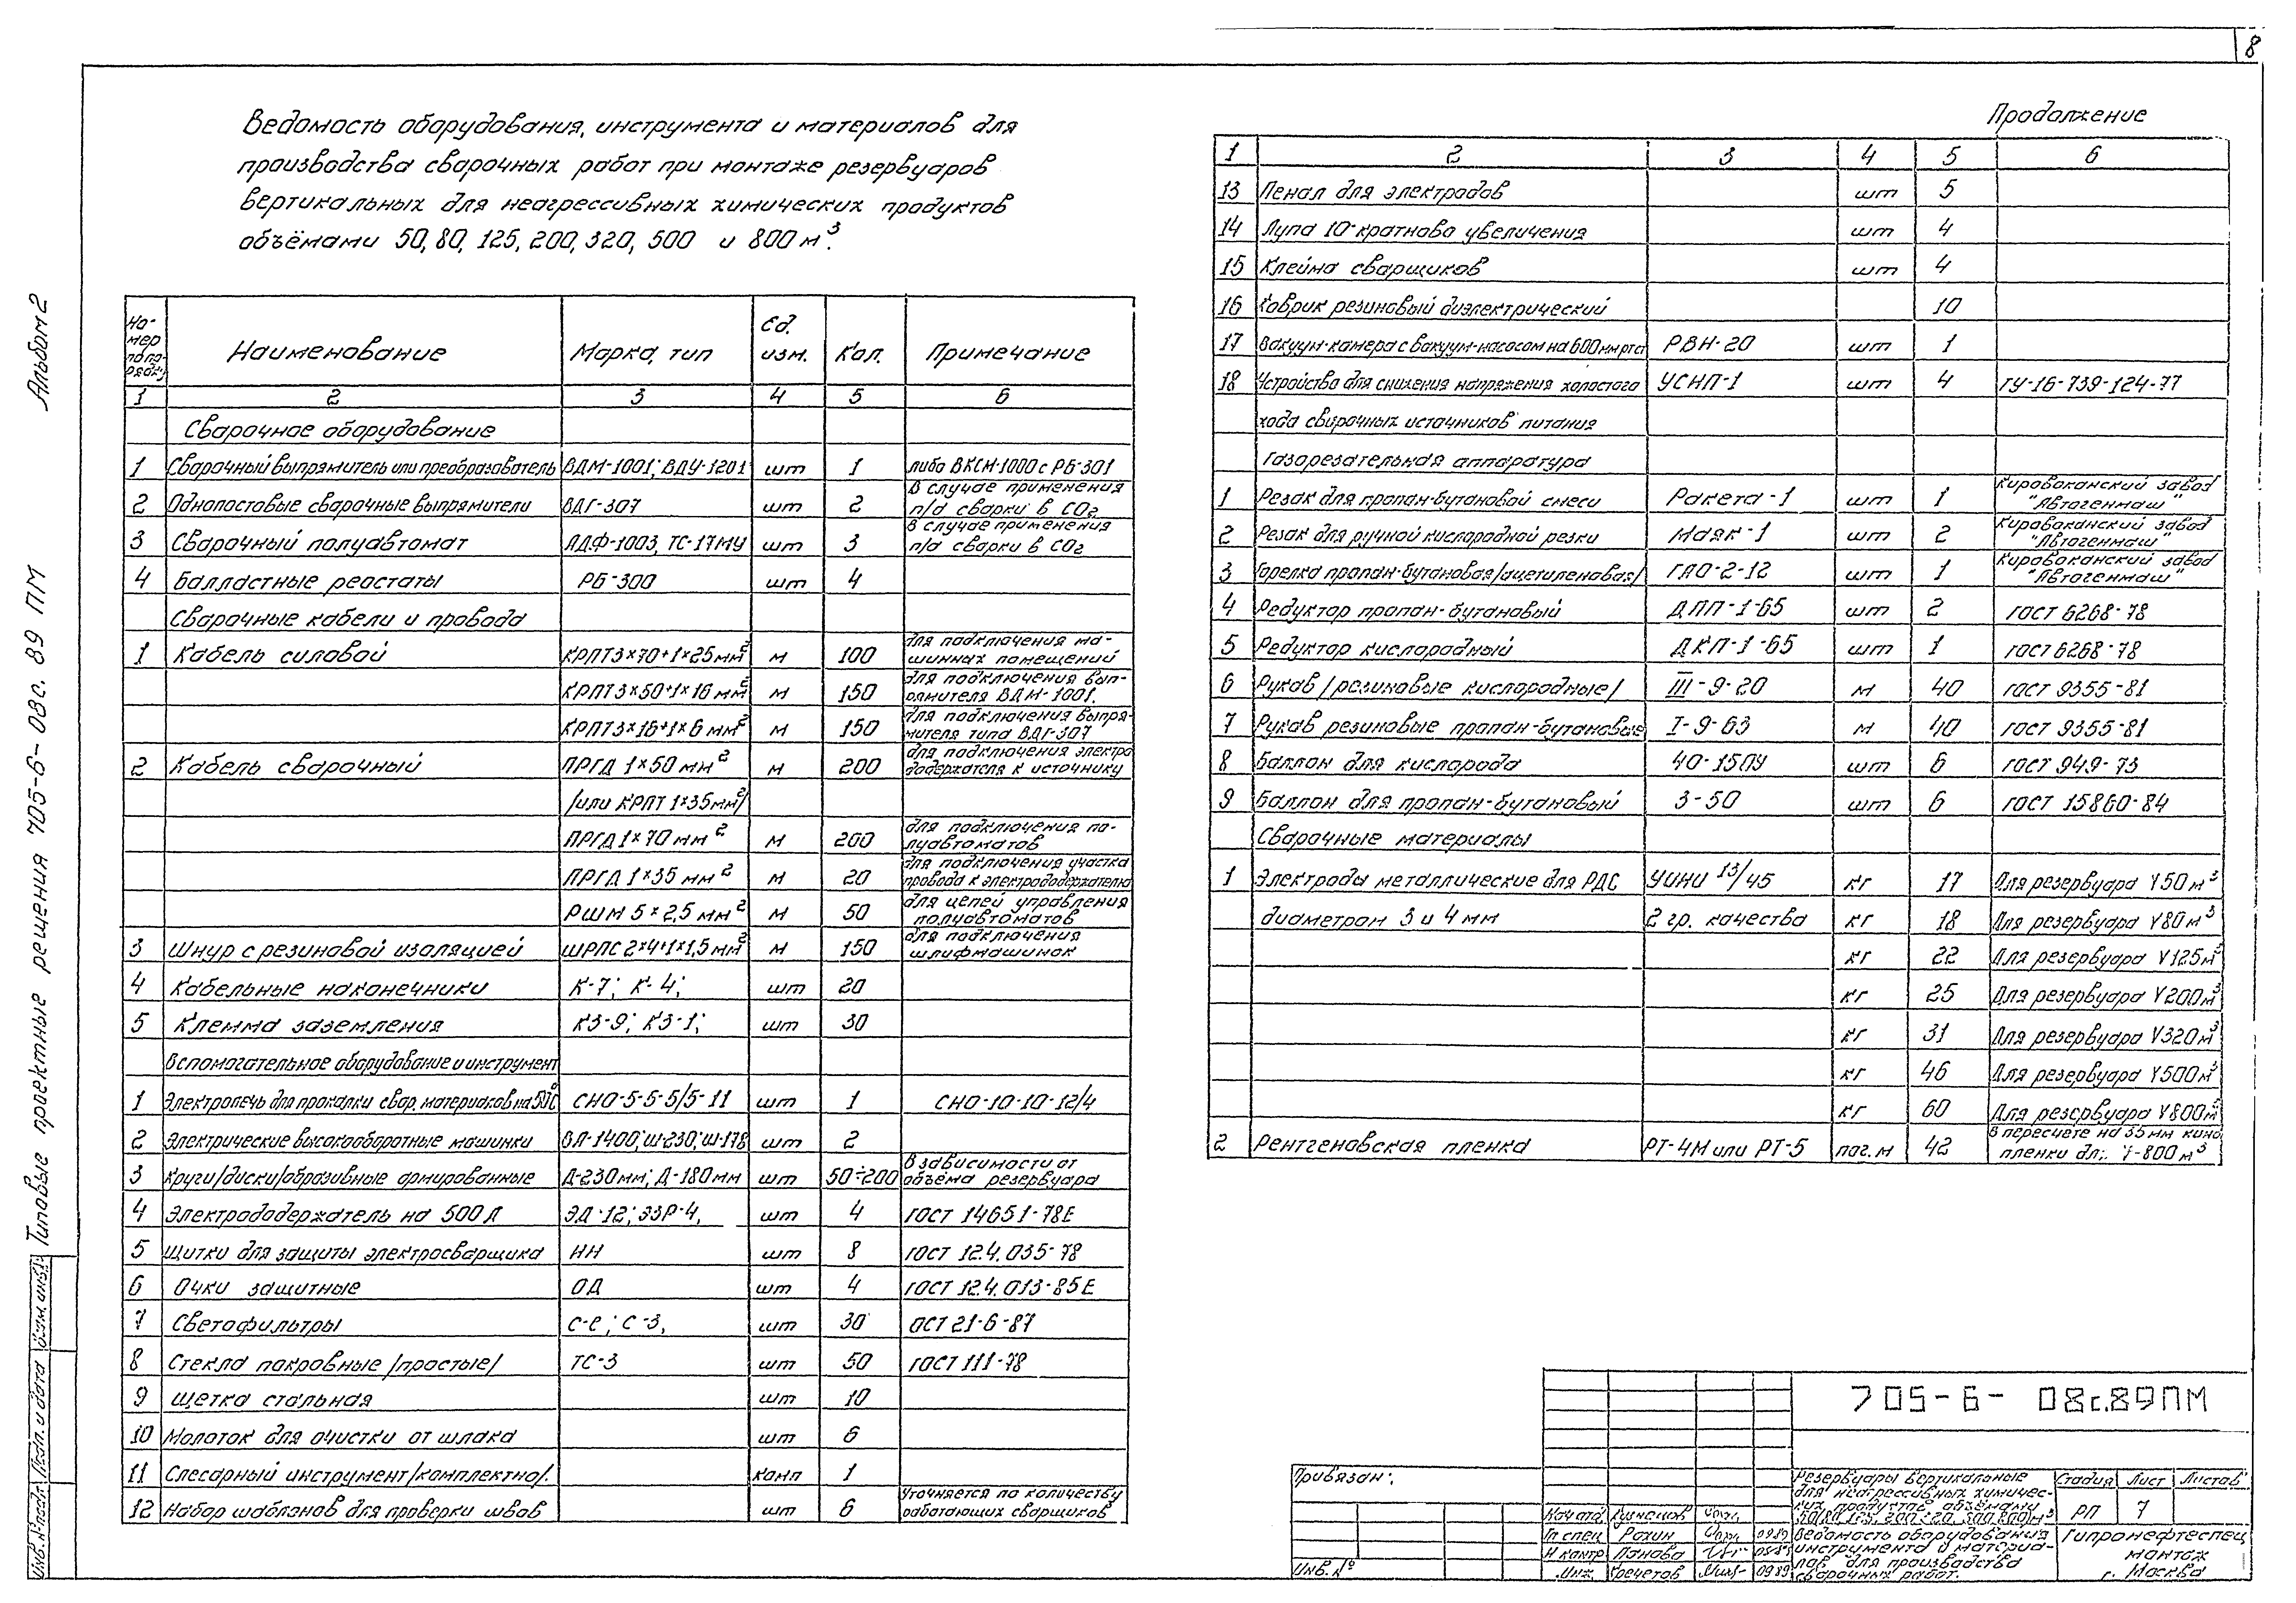 8
Ведомость оборудования, инструмента и материалов для
производства сварочных работ при монтаже резервуаров
вертикальных для неагрессивных химических продуктов
объёмами 50, 80, 125, 200, 320, 500 и 800 м³.
Номер по порядку | Наименование | Марка, тип | Ед. изм. | Кол. | Примечание
1 2 3 4 5 6
Сварочное оборудование
1 Сварочный выпрямитель или преобразователь ВДМ-1001; ВДУ-1201 шт 1 либо ВКСМ-1000 с РБ-301
2 Однопостовые сварочные выпрямители ВДГ-307 шт 2 В случае применения п/а сварки в СО₂
3 Сварочный полуавтомат АДФ-1003, ТС-17МУ шт 3 В случае применения п/а сварки в СО₂
4 Балластные реостаты РБ-300 шт 4
Сварочные кабели и провода
1 Кабель силовой КРПТ 3×70+1×25 мм² м 100 для подключения машинных помещений
КРПТ 3×50+1×16 мм² м 150 для подключения выпрямителя ВДМ-1001.
КРПТ 3×16+1×6 мм² м 150 для подключения выпрямителя типа ВДГ-307
2 Кабель сварочный ПРГД 1×50 мм² м 200 для подключения электрододержателя к источнику
/или КРПТ 1×35 мм²/
ПРГД 1×70 мм² м 200 для подключения полуавтоматов
ПРГД 1×35 мм² м 20 для подключения участка провода к электрододержателю
РШМ 5×2,5 мм² м 50 для цепей управления полуавтоматов
3 Шнур с резиновой изоляцией ШРПС 2×4+1×1,5 мм² м 150 для подключения шлифмашинок
4 Кабельные наконечники К-7; К-4; шт 20
5 Клемма заземления КЗ-9; КЗ-1; шт 30
Вспомогательное оборудование и инструмент
1 Электропечь для прокалки свар. материалов на 500°С СНО-5-5-5/5-11 шт 1 СНО-10-10-12/4
2 Электрические высокооборотные машинки ВЛ-1400; Ш-230; Ш-178 шт 2
3 Круги/диски/образивные армированные Д-230 мм; Д-180 мм шт 50÷200 В зависимости от объема резервуара
4 Электрододержатель на 500 А ЭД-12; ЭЗР-4, шт 4 ГОСТ 14651-78Е
5 Щитки для защиты электросварщика НН шт 8 ГОСТ 12.4.035-78
6 Очки защитные ОД шт 4 ГОСТ 12.4.013-85Е
7 Светофильтры С-е; С-3, шт 30 ОСТ 21-6-87
8 Стекла покровные /простые/ ТС-3 шт 50 ГОСТ 111-78
9 Щетка стальная шт 10
10 Молоток для очистки от шлака шт 6
11 Слесарный инструмент/комплектно/. комп 1
12 Набор шаблонов для проверки швов шт 6 Уточняется по количеству работающих сварщиков
Продолжение
1 2 3 4 5 6
13 Пенал для электродов шт 5
14 Лупа 10-кратново увеличения шт 4
15 Клейма сварщиков шт 4
16 Коврик резиновый диэлектрический 10
17 Вакуум-камера с вакуум-насосом на 600 мм рт ст РВН-20 шт 1
18 Устройство для снижения напряжения холостого УСНП-1 шт 4 ТУ-16-739-124-77
хода сварочных источников питания
Газорезательная аппаратура
1 Резак для пропан-бутановой смеси Ракета-1 шт 1 Кироваканский завод "Автогенмаш"
2 Резак для ручной кислородной резки Маяк-1 шт 2 Кироваканский завод "Автогенмаш"
3 Горелка пропан-бутановая/ацетиленовая/ ГАО-2-12 шт 1 Кироваканский завод "Автогенмаш"
4 Редуктор пропан-бутановый ДПП-1-65 шт 2 ГОСТ 6268-78
5 Редуктор кислородный ДКП-1-65 шт 1 ГОСТ 6268-78
6 Рукав /резиновые кислородные/ III-9-20 м 40 ГОСТ 9355-81
7 Рукав резиновые пропан-бутановые I-9-63 м 40 ГОСТ 9355-81
8 Баллон для кислорода 40-150У шт 6 ГОСТ 949-73
9 Баллон для пропан-бутановый 3-50 шт 6 ГОСТ 15860-84
Сварочные материалы
1 Электроды металлические для РДС УОНИ 13/45 кг 17 Для резервуара V50 м³
диаметром 3 и 4 мм 2 гр. качества кг 18 Для резервуара V80 м³
кг 22 Для резервуара V125 м³
кг 25 Для резервуара V200 м³
кг 31 Для резервуара V320 м³
кг 46 Для резервуара V500 м³
кг 60 Для резервуара V800 м³
2 Рентгеновская пленка РТ-4М или РТ-5 пог. м 42 В пересчете на 35 мм кино пленки для V-800 м³
705-6-08с.89ПМ
Привязан:
Инв. №
Нач отд. Кузнецов
Гл спец Рохин 0989
Н контр Панова
Инж. Кречетов 0989
Резервуары вертикальные
для неагрессивных химичес-
ких продуктов объёмами
50, 80, 125, 200, 320, 500, 800 м³
Ведомость оборудования
инструмента и материа-
лов для производства
сварочных работ.
Стадия Лист Листов
РП 7
Гипронефтеспец
монтаж
г. Москва
Альбом 2
Типовые проектные решения 705-6-08с.89 ПМ
Инв. № подл. Подп. и дата Взам. инв. №